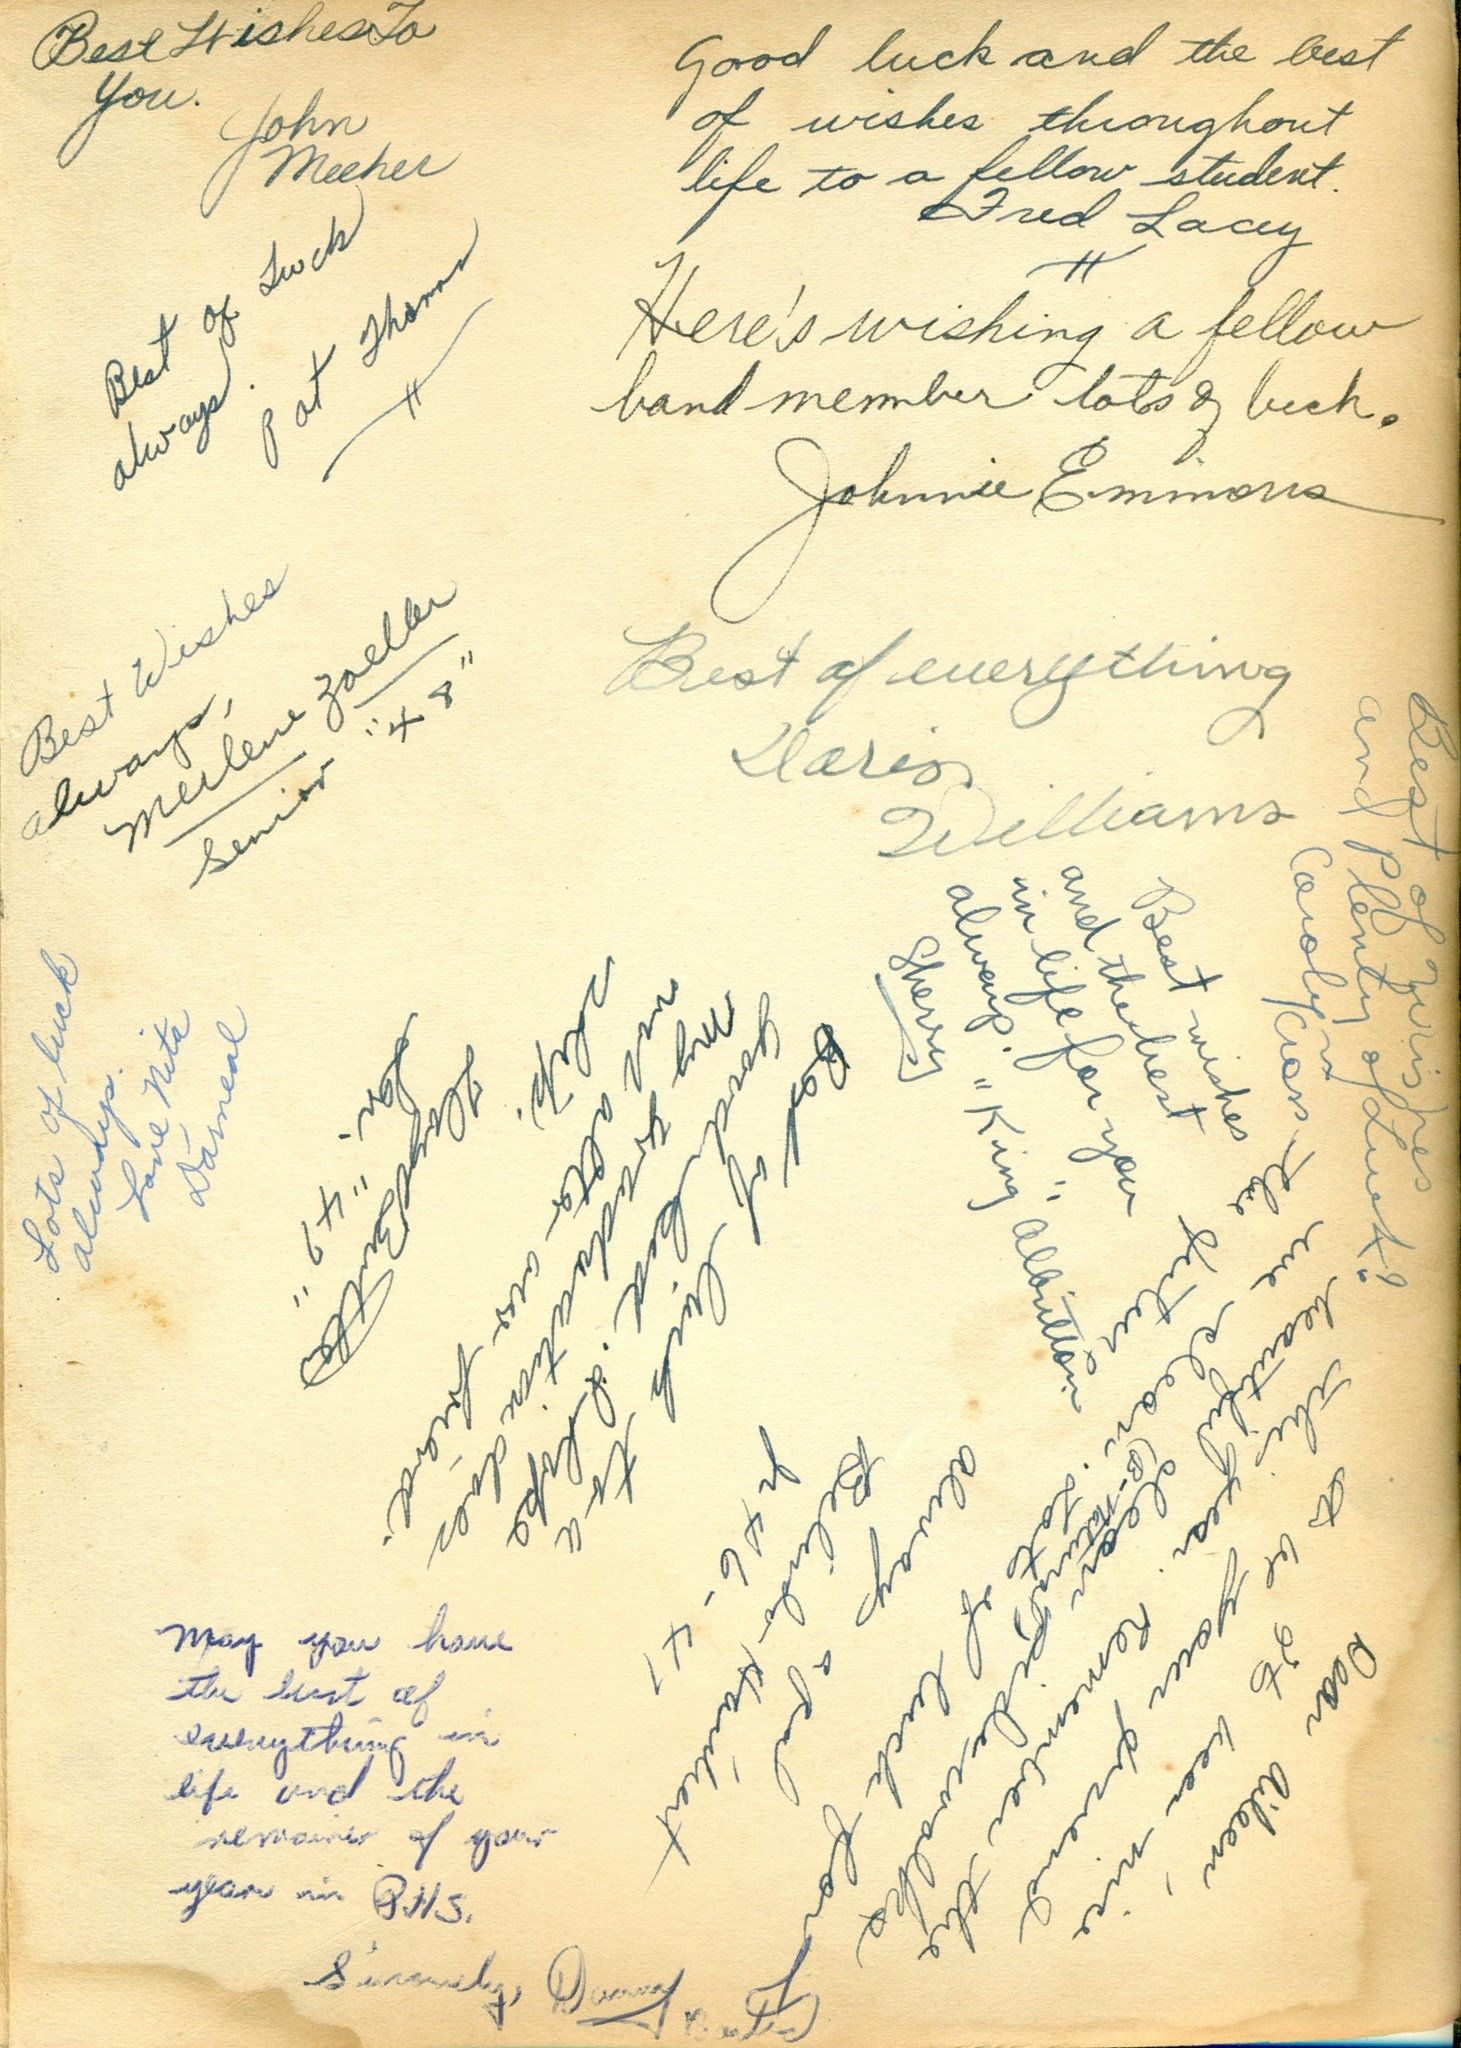 Best Wishes To
You.
John
Meeher
Good luck and the best
of wishes throughout
life to a fellow student.
Fred Lacey
Best of Luck
always.
Pat Thomas
Here's wishing a fellow
band member lots of luck.
Johnnie Emmons
Best Wishes
always,
Merlene Zoeller
Senior "48"
Best of everything
Williams
Best of Wishes
and Plenty of Luck!
Carolyn
Best wishes
and the best
in life for you
always.
Sherry "King" Albritton
Lots of luck
always.
Love Nita
Darneal
Best of luck to a
good kid. I hope
my graduation does
not alter our friend-
ship.
"49"
Dear Aileen,
It has been nice
to be your friend
this year. Remember the
beautiful
we clean.
Lots of luck for
always
a pal
Jr 46-47
May you have
the best of
everything in
life and the
remainer of your
year in P.H.S.
Sincerely, Danny